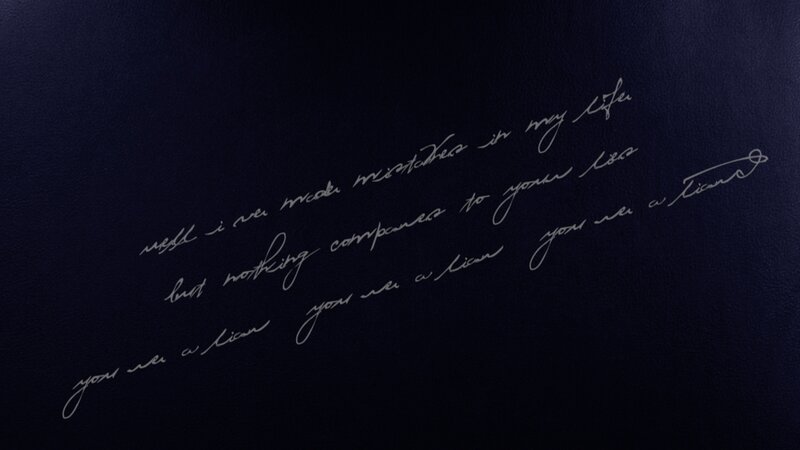 well i ve made mistakes in my life
but nothing compares to your lies
you re a liar you re a liar you re a liar